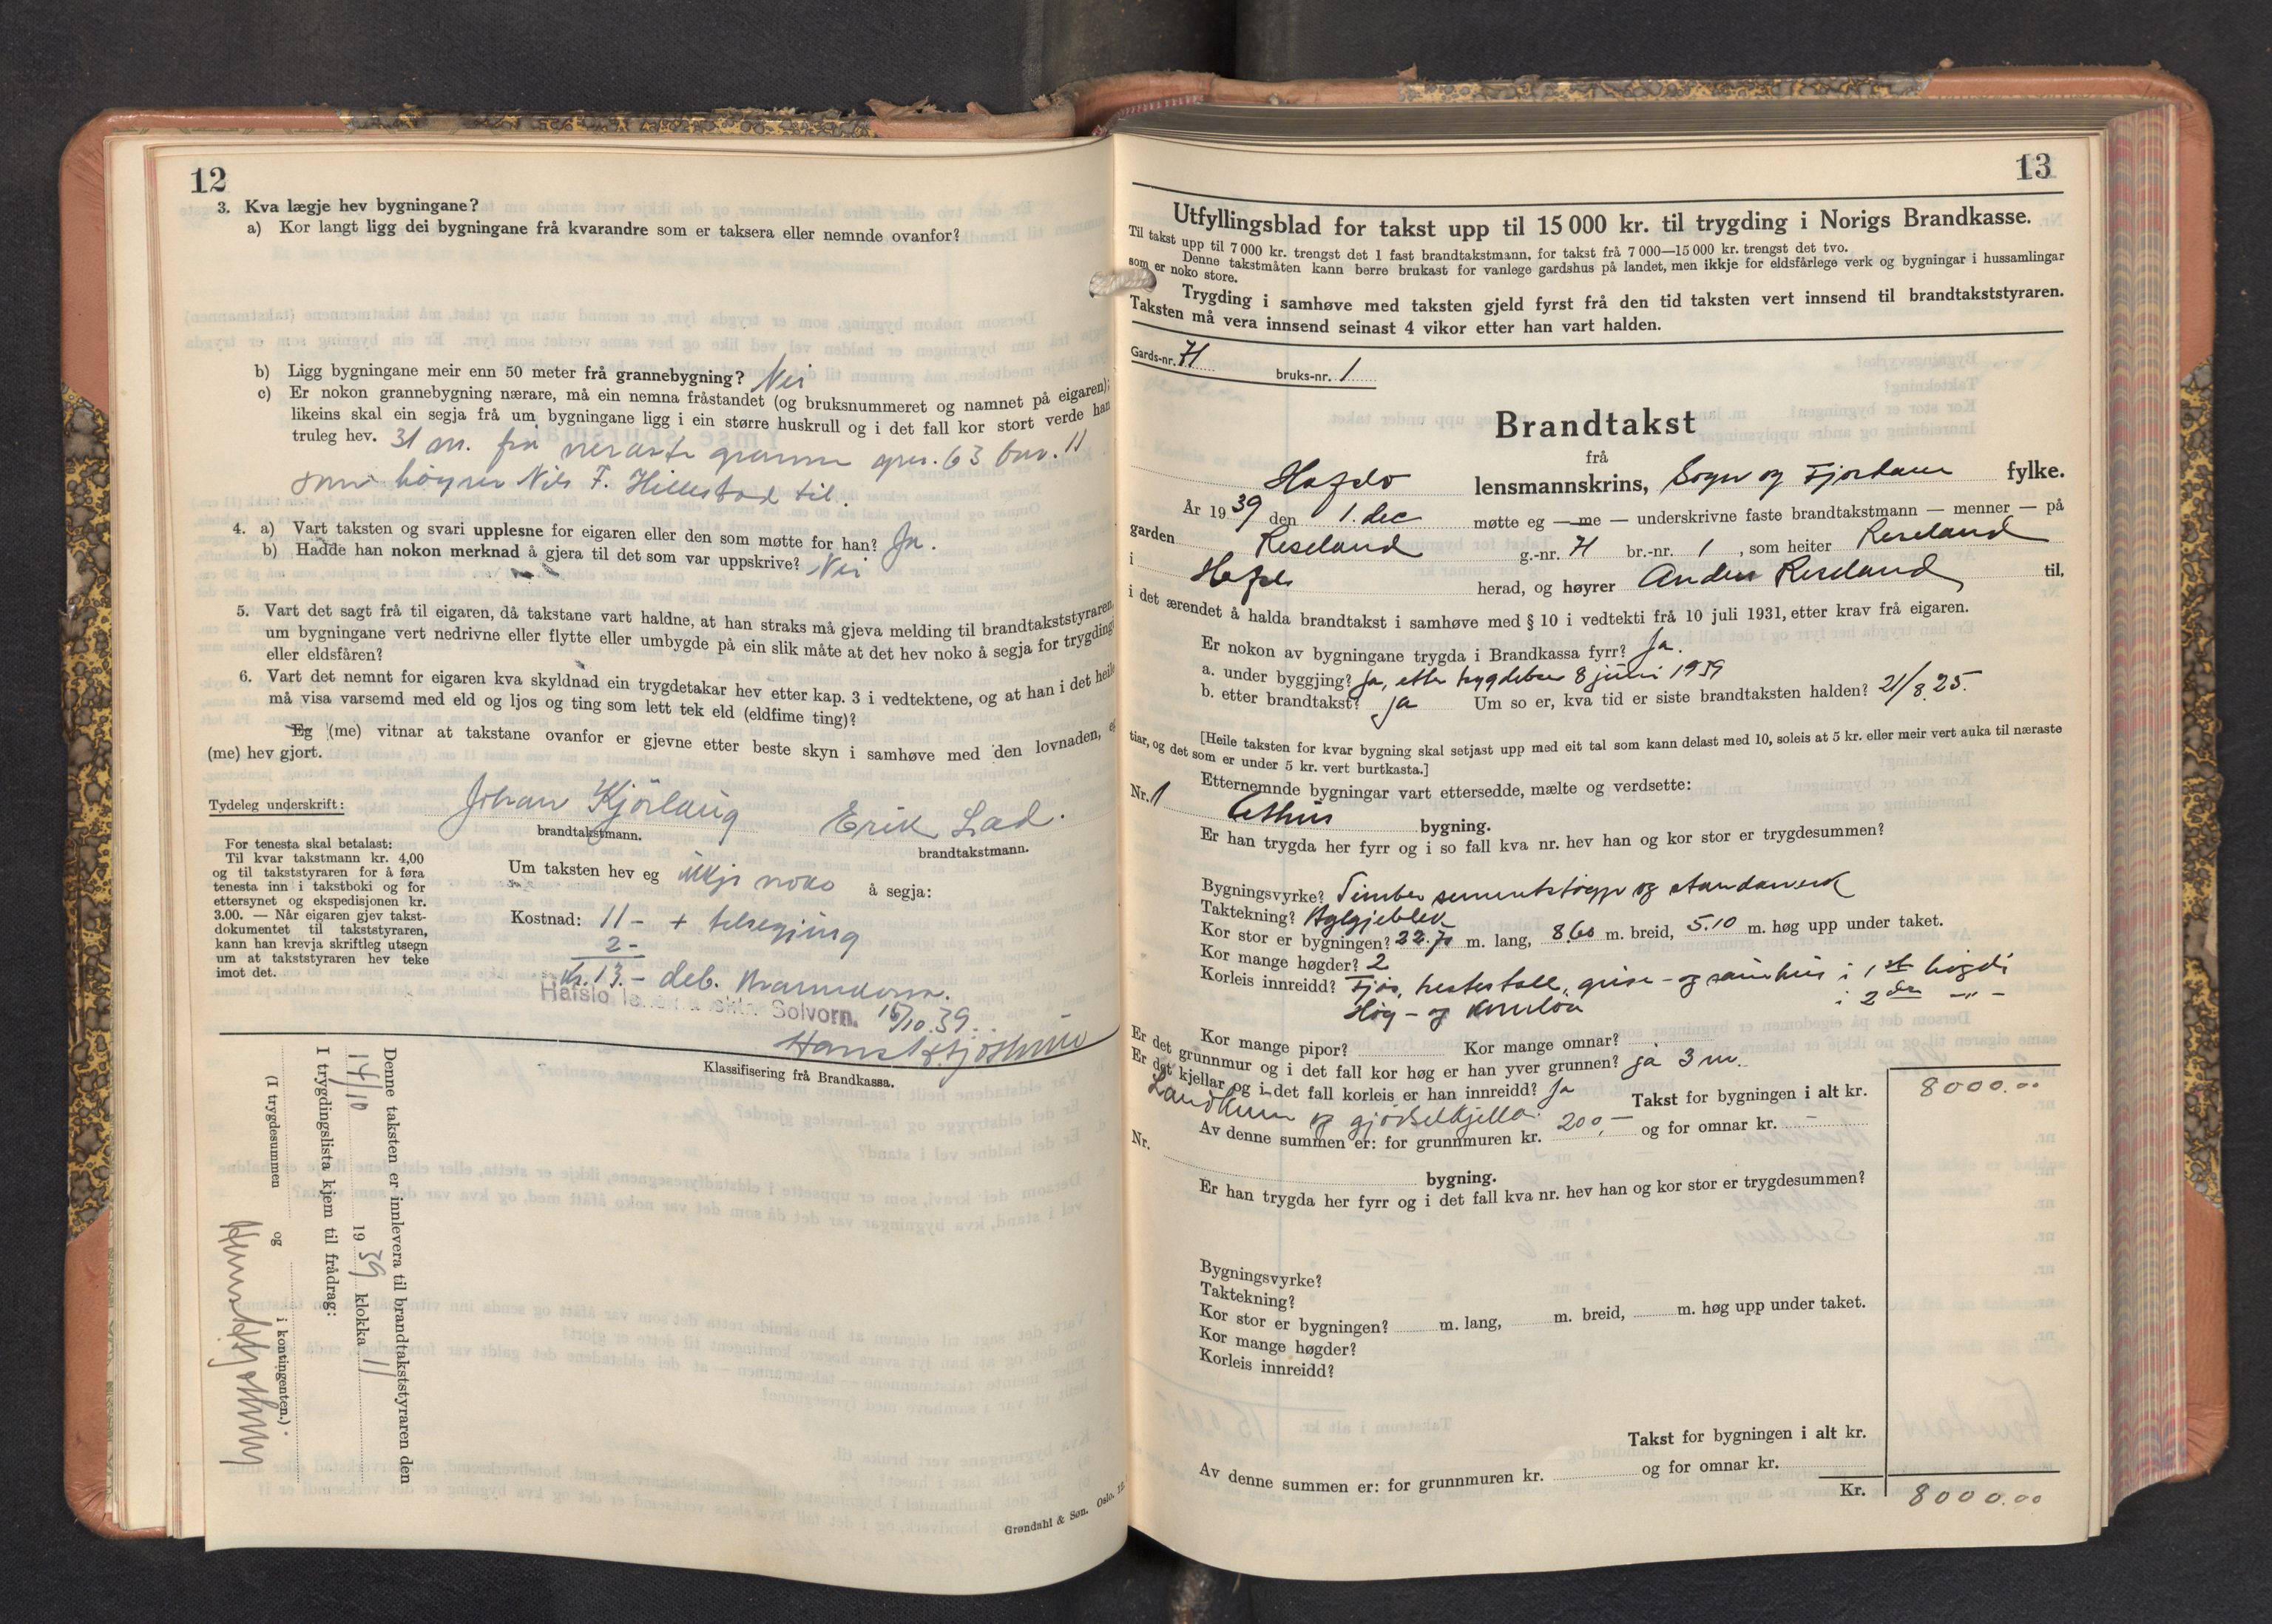 12
3. Kva lægje hev bygningane?
a) Kor langt ligg dei bygningane frå kvarandre som er taksera eller nemnde ovanfor?
b) Ligg bygningane meir enn 50 meter frå grannebygning? Nei
c) Er nokon grannebygning nærare, må ein nemna fråstandet (og bruksnummeret og namnet på eigaren);
likeins skal ein segja frå um bygningane ligg i ein større huskrull og i det fall kor stort verde han
truleg hev. 31 m. frå næraste granne gnr. 63 bnr. 11
som høyrer Nils F. Hillestad til.
4. a) Vart taksten og svari upplesne for eigaren eller den som møtte for han? Ja.
b) Hadde han nokon merknad å gjera til det som var uppskrive? Nei
5. Vart det sagt frå til eigaren, då takstane vart haldne, at han straks må gjeva melding til brandtakststyraren,
um bygningane vert nedrivne eller flytte eller umbygde på ein slik måte at det hev noko å segja for trygdingi
eller eldsfåren?
6. Vart det nemnt for eigaren kva skyldnad ein trygdetakar hev etter kap. 3 i vedtektene, og at han i det heile
må visa varsemd med eld og ljos og ting som lett tek eld (eldfime ting)?
Eg (me) vitnar at takstane ovanfor er gjevne etter beste skyn i samhøve med den lovnaden, eg
(me) hev gjort.
Tydeleg underskrift: Johan Kjörlaug Erik Lad.
brandtakstmann. brandtakstmann.
For tenesta skal betalast:
Til kvar takstmann kr. 4,00
og til takststyraren for å føra
tenesta inn i takstboki og for
ettersynet og ekspedisjonen kr.
3.00. — Når eigaren gjev takst-
dokumentet til takststyraren,
kann han krevja skriftleg utsegn
um at takststyraren hev teke
imot det.
Um taksten hev eg ikkje noko å segja:
Kostnad: 11 - +
2 -
Kr. 13.- deb.
Hafslo Solvorn. 15/10.39.
Klassifisering frå Brandkassa.
Denne taksten er innlevera til brandtakststyraren den
14/10 1939 klokka 11
I trygdingslista kjem til frådrag:
(I trygdesummen og i kontingenten.)
Grøndahl & Søn. Oslo.
13
Utfyllingsblad for takst upp til 15 000 kr. til trygding i Norigs Brandkasse.
Til takst upp til 7 000 kr. trengst det 1 fast brandtakstmann, for takst frå 7 000—15 000 kr. trengst det tvo.
Denne takstmåten kann berre brukast for vanlege gardshus på landet, men ikkje for eldsfårlege verk og bygningar i hussamlingar
som er noko store.
Trygding i samhøve med taksten gjeld fyrst frå den tid taksten vert innsend til brandtakststyraren.
Taksten må vera innsend seinast 4 vikor etter han vart halden.
Gards-nr. 71 bruks-nr. 1
Brandtakst
frå
Hafslo lensmannskrins, Sogn og Fjordane fylke.
År 1939 den 1. dec møtte eg — me — underskrivne faste brandtakstmann — menner — på
garden Reseland g.-nr. 71 br.-nr. 1, som heiter Reseland
i Hafslo herad, og høyrer Anders Reseland til,
i det ærendet å halda brandtakst i samhøve med § 10 i vedtekti frå 10 juli 1931, etter krav frå eigaren.
Er nokon av bygningane trygda i Brandkassa fyrr? Ja.
a. under byggjing? Ja, etter trygdebrev 8 juni 1939
b. etter brandtakst? Ja Um so er, kva tid er siste brandtaksten halden? 21/8.25.
[Heile taksten for kvar bygning skal setjast upp med eit tal som kann delast med 10, soleis at 5 kr. eller meir vert auka til næraste
tiar, og det som er under 5 kr. vert burtkasta.]
Etternemnde bygningar vart ettersedde, mælte og verdsette:
Nr. 1 Uthus bygning.
Er han trygda her fyrr og i so fall kva nr. hev han og kor stor er trygdesummen?
Bygningsvyrke? Timber sementstøyp og standarverk
Taktekning? Bylgjeblekk
Kor stor er bygningen? 22.70 m. lang, 8,60 m. breid, 5.10 m. høg upp under taket.
Kor mange høgder? 2
Korleis innreidd? Fjøs, hestestall, grise- og sauehus i 1ste högdi
Høy- og kornløa i 2dre -"-
Kor mange pipor? Kor mange omnar?
Er det grunnmur og i det fall kor høg er han yver grunnen? ja 3 m.
Er det kjellar og i det fall korleis er han innreidd? Ja
Landkum og gjødselkjellar. Takst for bygningen i alt kr. 8000.00
Av denne summen er: for grunnmuren kr. 200,- og for omnar kr. -
Nr. bygning.
Er han trygda her fyrr og i det fall kva nr. hev han og kor stor er trygdesummen?
Bygningsvyrke?
Taktekning?
Kor stor er bygningen? m. lang, m. breid, m. høg upp under taket.
Kor mange høgder?
Korleis innreidd?
Takst for bygningen i alt kr.
Av denne summen er: for grunnmuren kr. og for omnar kr.
Kr. 8000.00